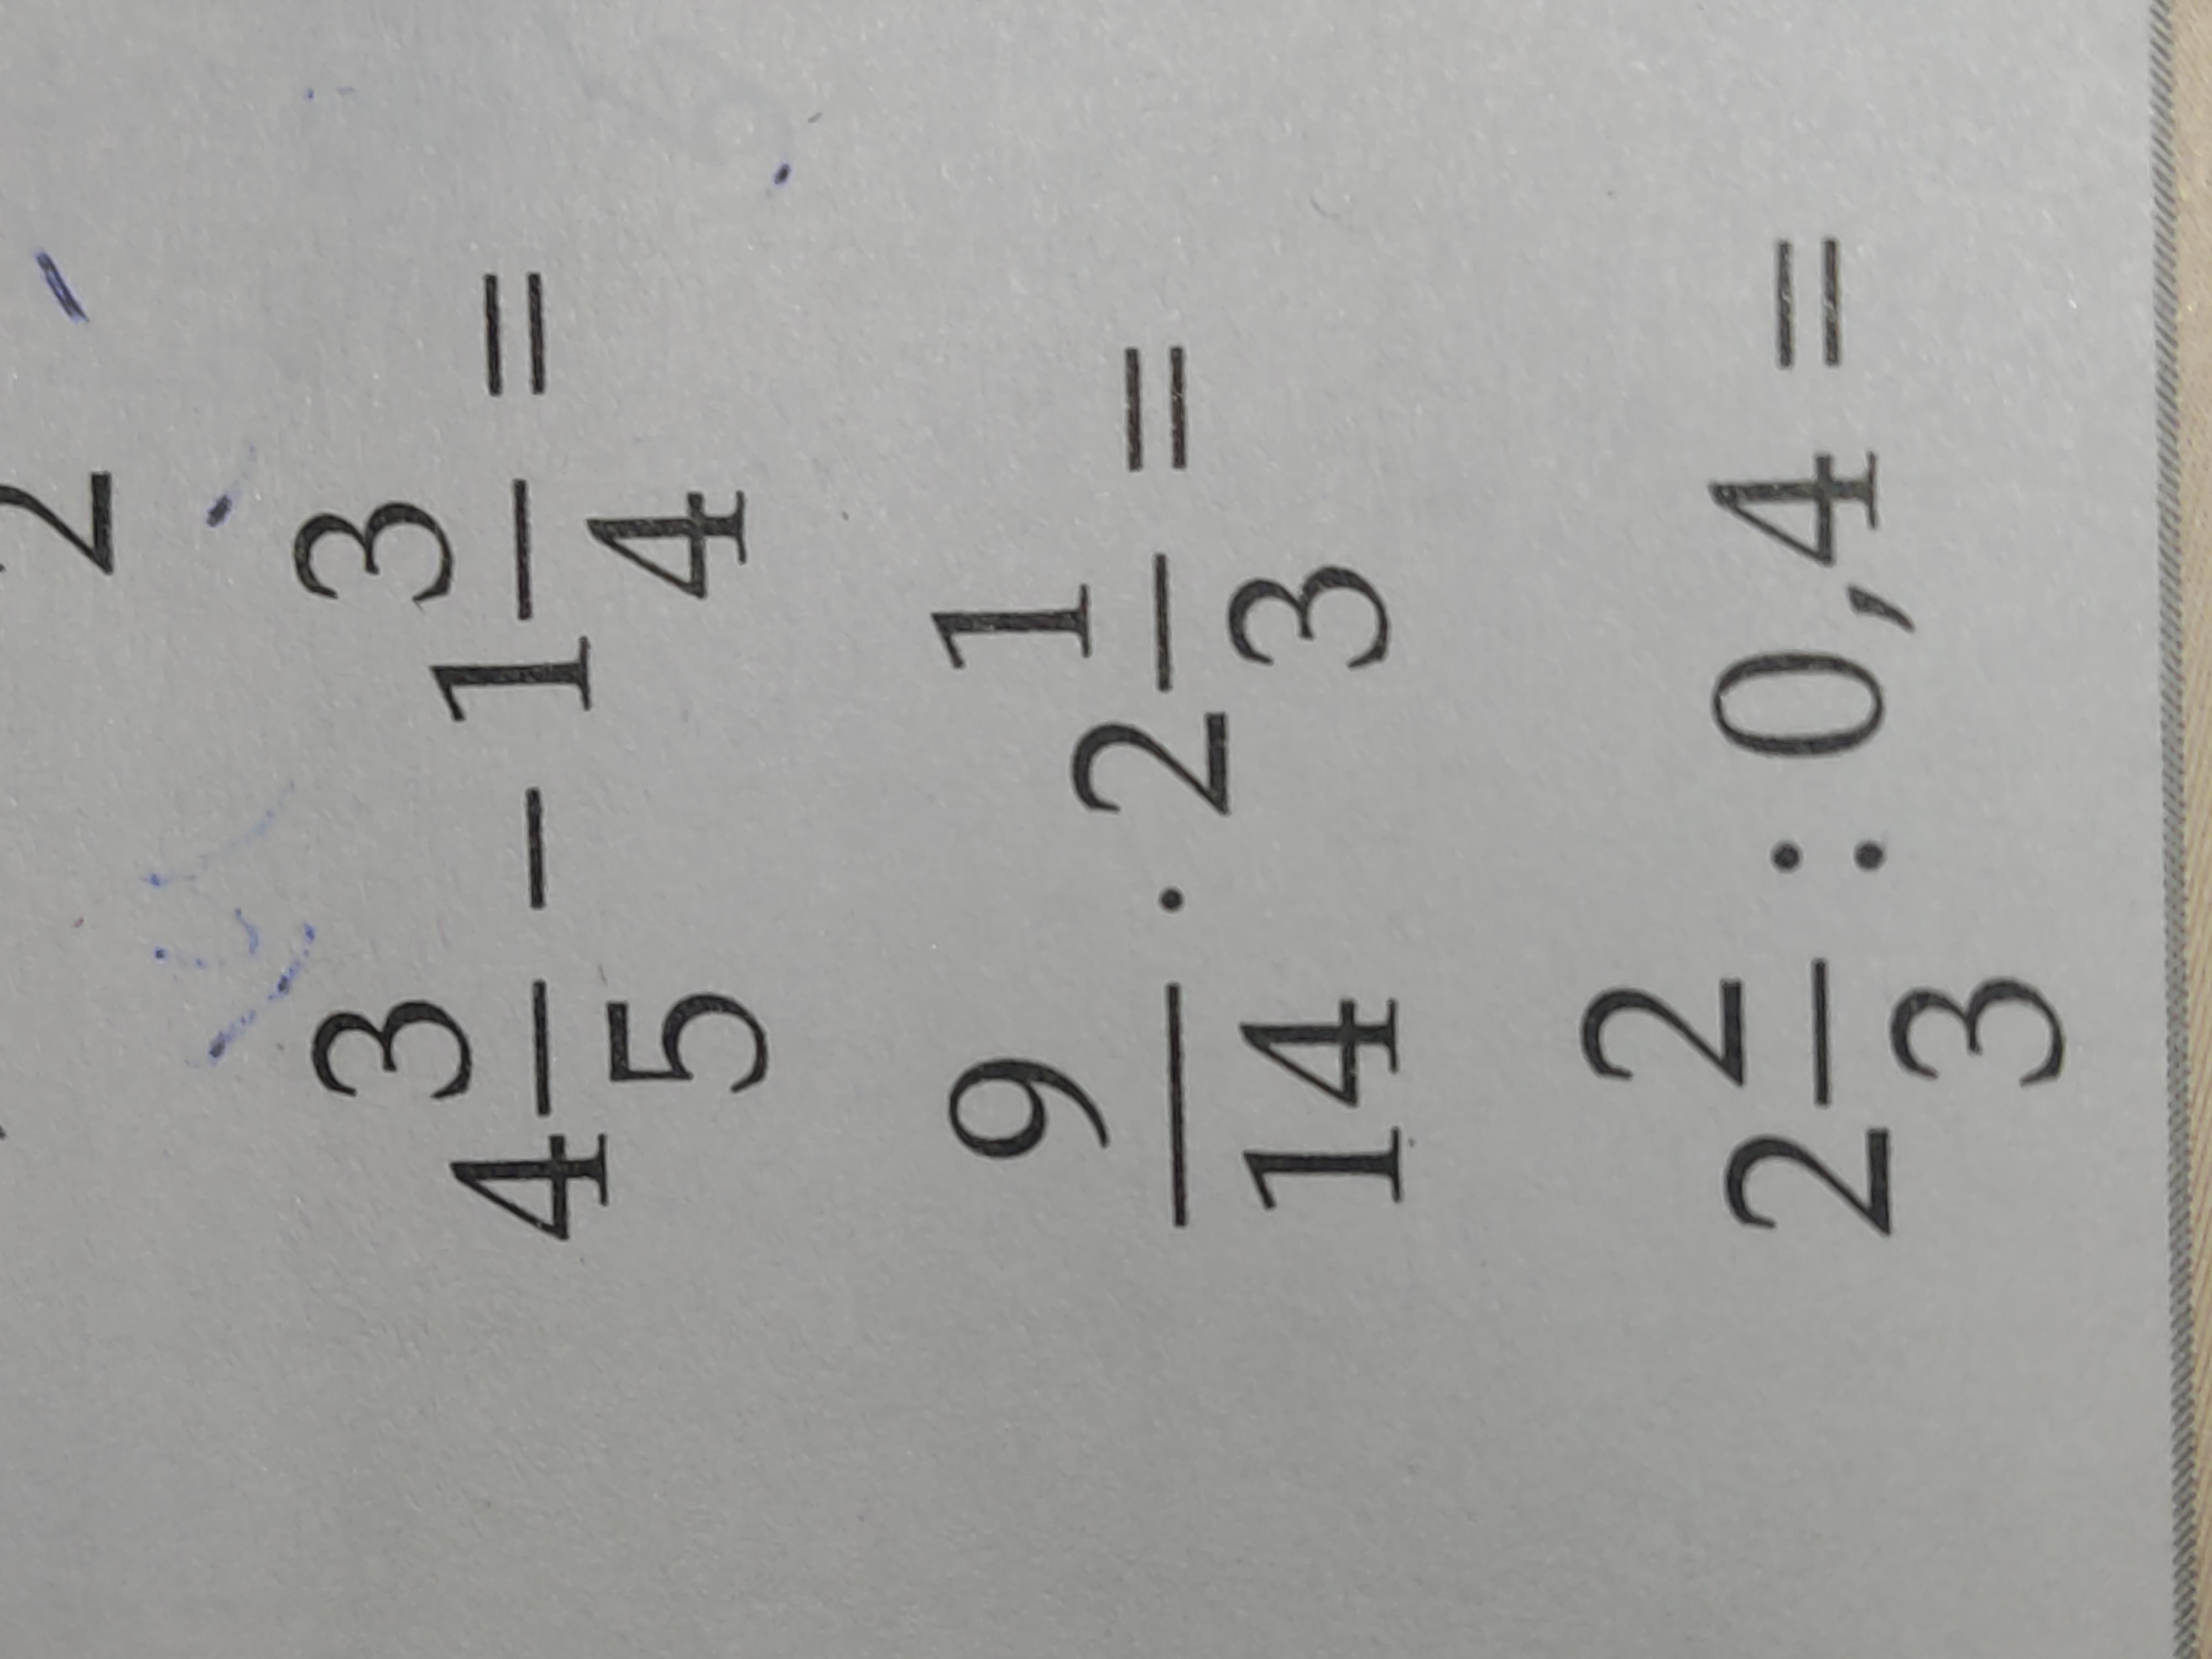 2
4 3/5 − 1 3/4 =
9/14 · 2 1/3 =
2 2/3 : 0,4 =